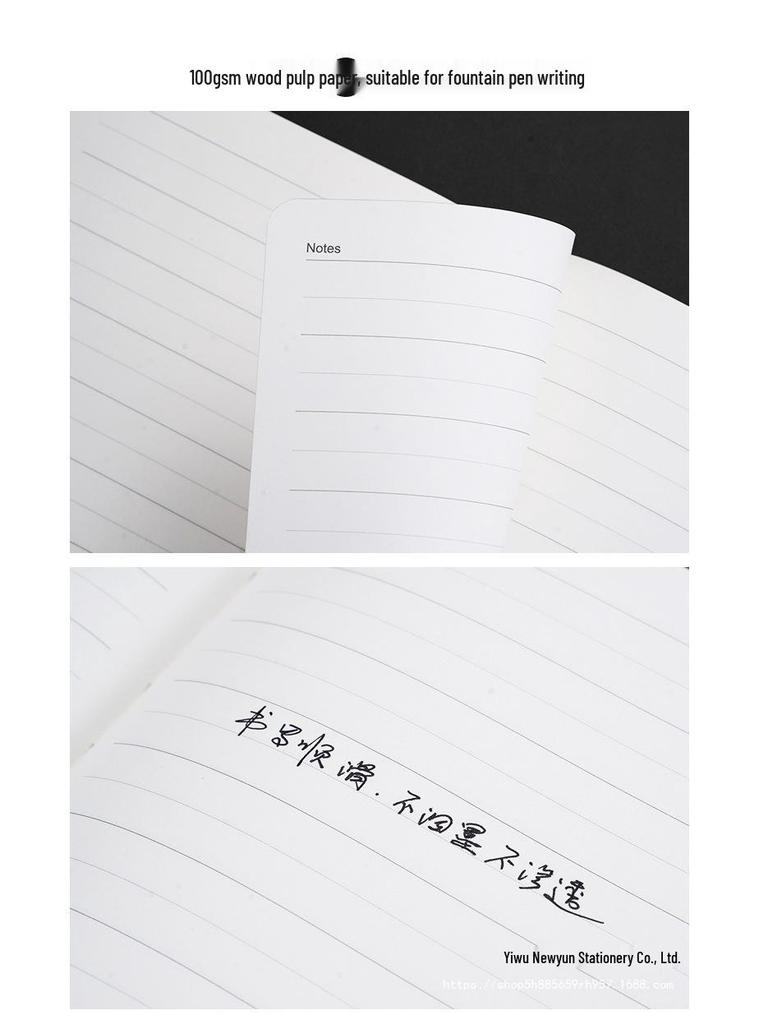 100gsm wood pulp paper, suitable for fountain pen writing
Notes
书写顺滑.不洇墨不渗透
Yiwu Newyun Stationery Co., Ltd.
https://shop5h885659rh957.1688.com